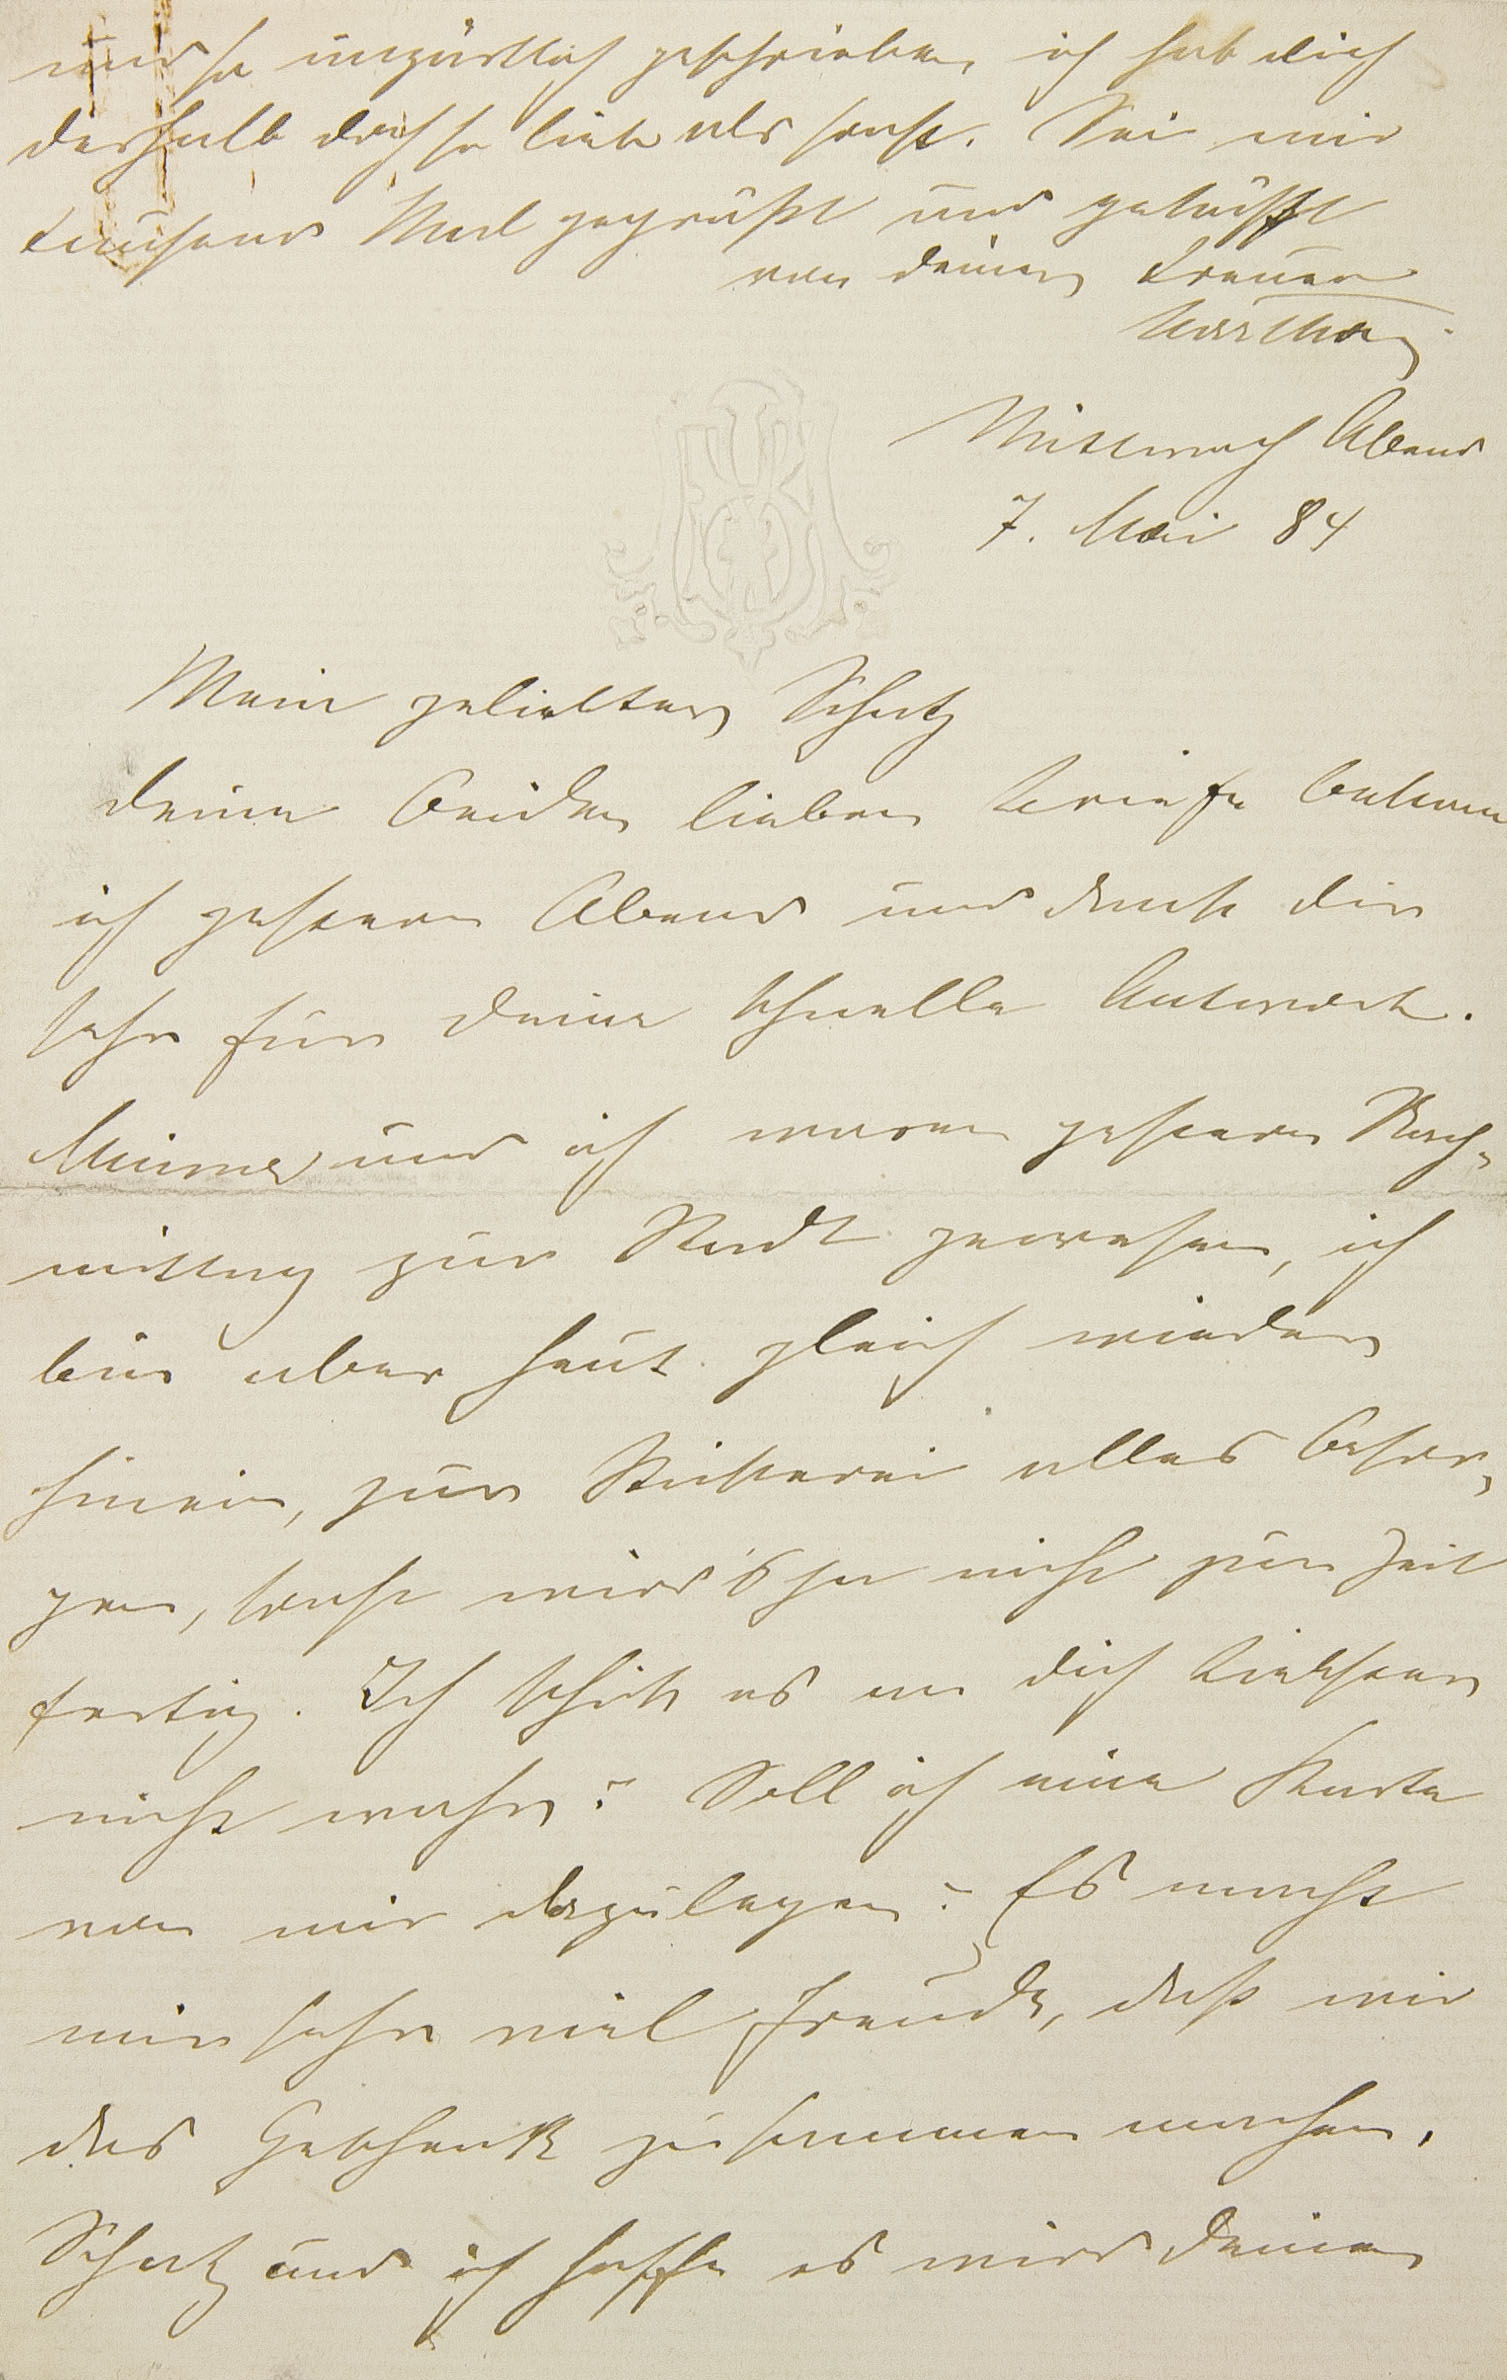 und so unzärtlich geschrieben, ich hab dich
deshalb doch so lieb als sonst. Sei mir
tausend Mal gegrüßt und geküßt
von deiner treuen
Mittwoch Abend
7. Mai 84
Mein geliebter Schatz
deine beiden lieben Briefe bekam
ich gestern Abend und danke dir
sehr für deine schnelle Antwort.
und ich waren gestern Nach-
mittag zur Stadt gewesen, ich
bin aber heut gleich wieder
hinein, zur Stickerei alles besor-
gen, sonst wird's ja nicht zur Zeit
fertig. Ich schick es an dich Liebster
nicht wahr? Soll ich eine Karte
von mir dazulegen? Es macht
mir sehr viel Freude, daß wir
das Geschenk zusammen machen,
Schatz und ich hoffe es wird deiner